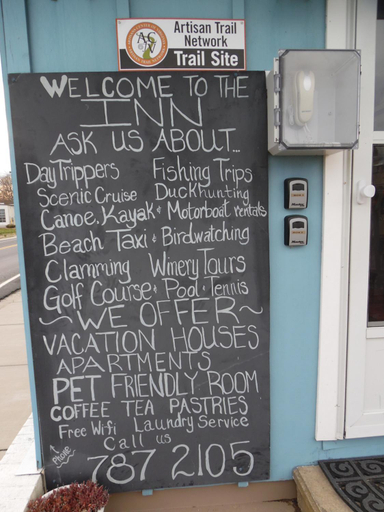 Artisan Trail
Network
Trail Site
WELCOME TO THE
INN
ASK US ABOUT...
Day Trippers Fishing Trips
Scenic Cruise Duck Hunting
Canoe, Kayak & Motorboat rentals
Beach Taxi & Birdwatching
Clamming Winery Tours
Golf Course & Pool & Tennis
~ WE OFFER ~
VACATION HOUSES
APARTMENTS
PET FRIENDLY ROOM
COFFEE TEA PASTRIES
Free Wifi Laundry Service
Call us
Phone
787 2105